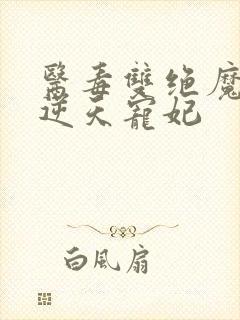 醫毒雙绝魔
逆天寵妃
白風扇